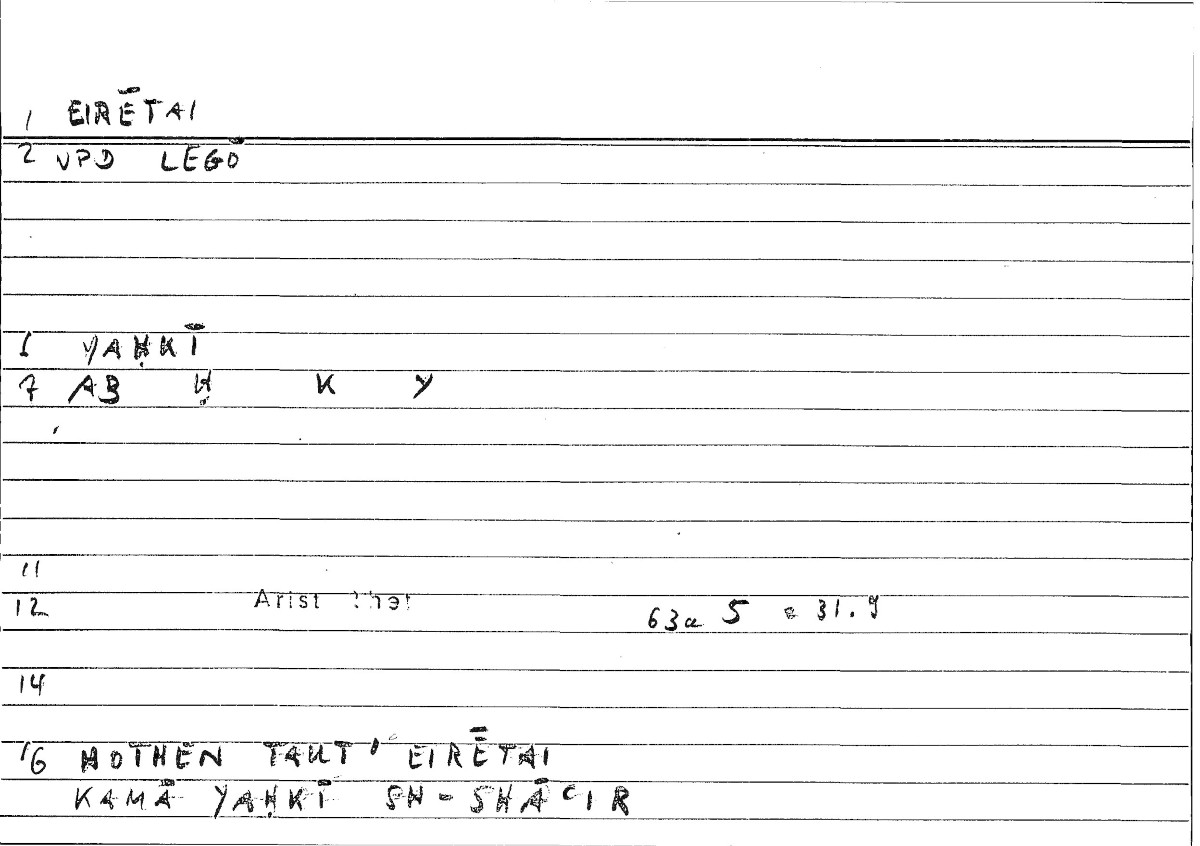 1 EIRĒTAI
2 VPD LEGŌ
6 YAḤKĪ
7 AB Ḥ K Y
11
12 Arist Rhet 63a 5 = 31.9
14
16 HOTHEN TAUT' EIRĒTAI
KAMĀ YAḤKĪ SH-SHĀʿIR